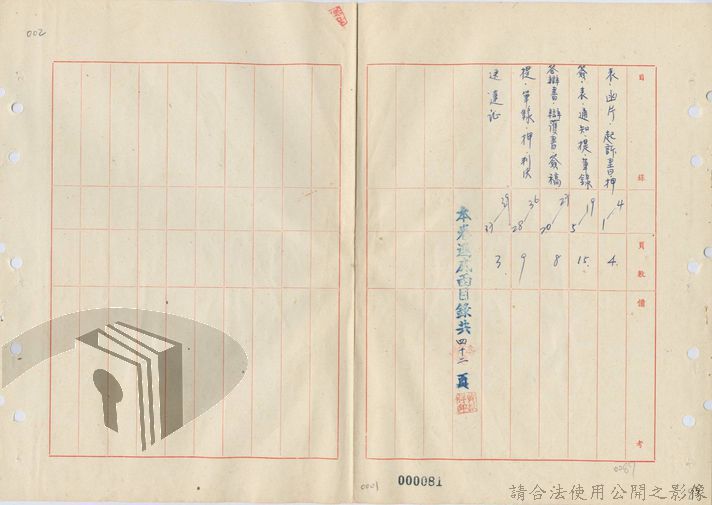 002
目錄
頁數
備考
表.函片.起訴書押
4/1
4.
簽.表.通知.提.筆錄
19/5
15.
答辯書.辯護書簽稿
27/20
8
提.筆錄.押判決
36/28
9
送達証
39/37
3
本卷連底面目錄共四十二頁
0067
0001
000081
請合法使用公開之影像